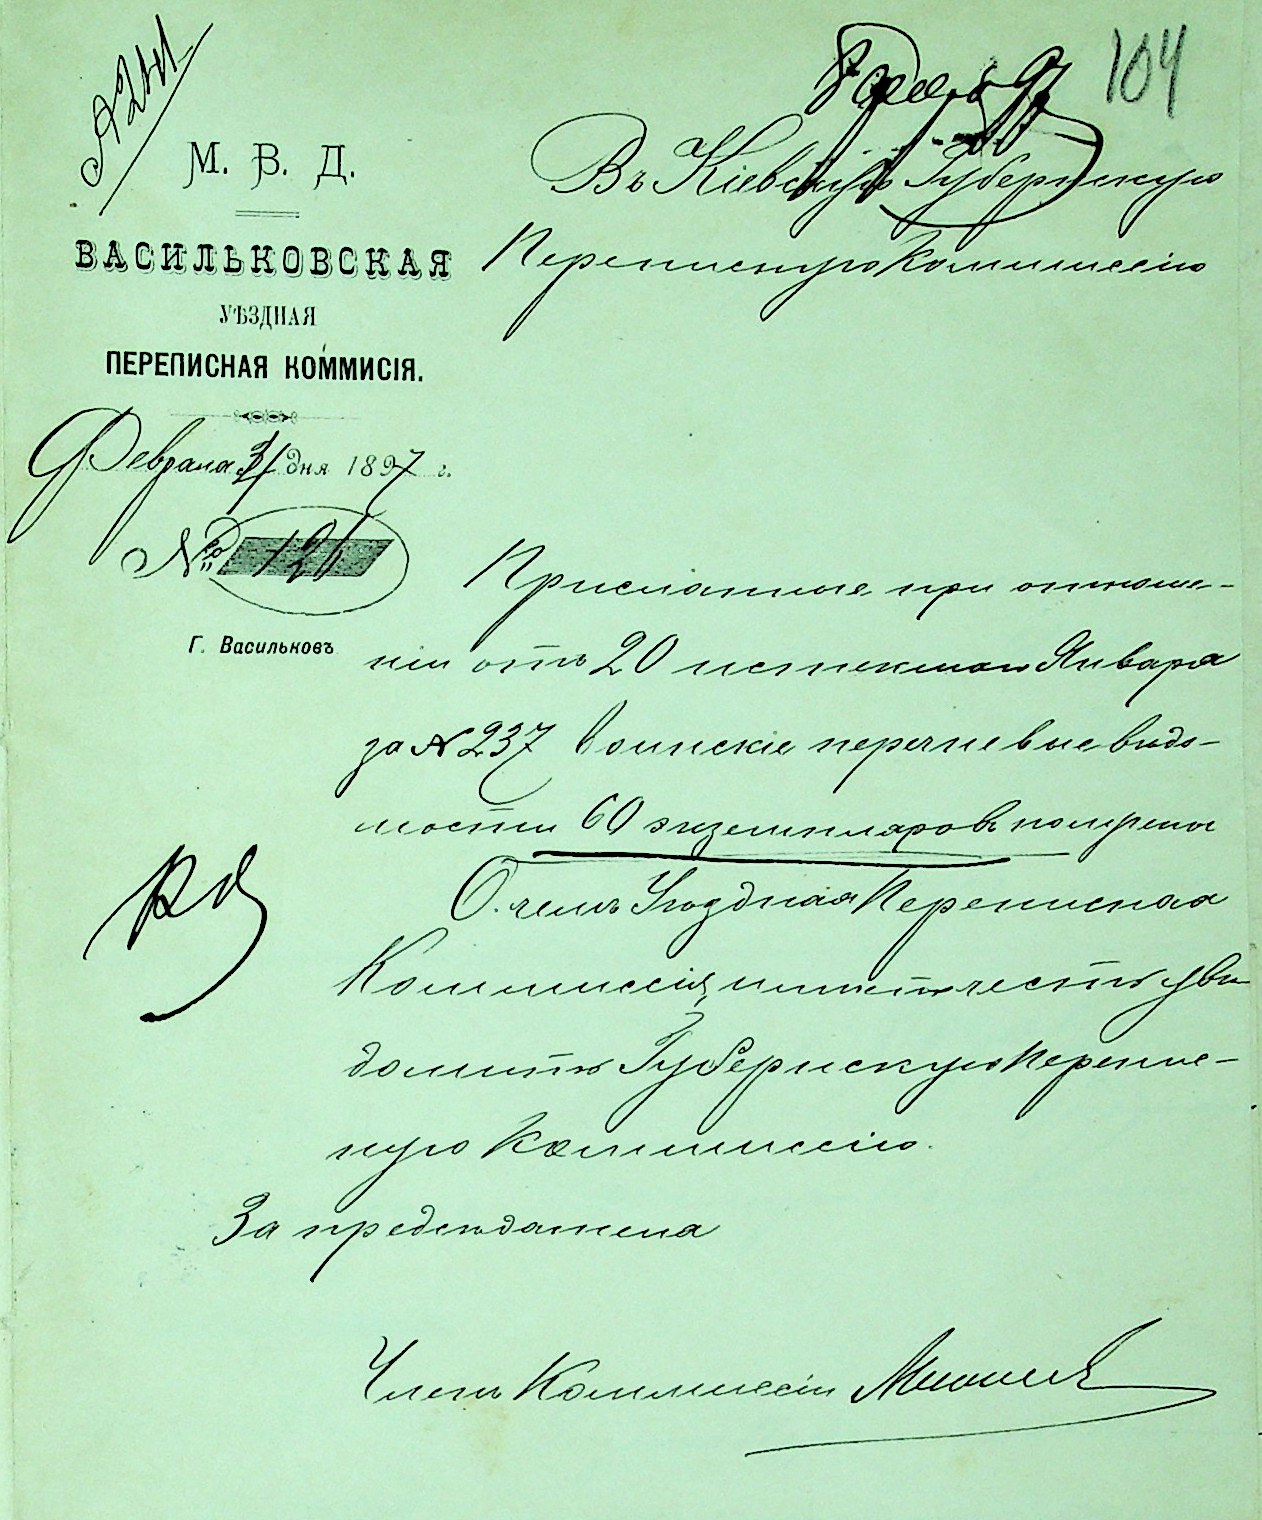 104
М. В. Д.
ВАСИЛЬКОВСКАЯ
УѢЗДНАЯ
ПЕРЕПИСНАЯ КОММИСІЯ.
Февраля дня 1897 г.
№ 121
Г. Васильковъ
Въ Кіевскую Губернскую
Переписную Коммиссію
Присланные при отноше-
ніи отъ 20 истекшаго Января
за № 237 воинскіе перечневые вѣдо-
мости 60 экземпляровъ получены
О чемъ Уѣздная Переписная
Коммиссія имѣетъ честь увѣ-
домить Губернскую Перепис-
ную Коммиссію.
За предсѣдателя
Членъ Коммиссіи